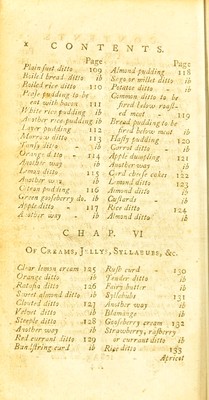 x CONTENTS.
Page
Plain suet ditto 109
Boiled bread ditto ib
Boiled rice ditto 110
Pease pudding to be
eat with bacon 111
White rice pudding ib
Another rice pudding ib
Layer pudding 112
Marrow ditto 113
Tansy ditto ib
Orange ditto - 114
Another way ib
Lemon ditto 115
Another way ib
Citron pudding 116
Green gooseberry do. ib
Apple ditto - 117
Another way - ib
Page
Almond pudding 118
Sago or millet ditto ib
Potatoe ditto - ib
Common ditto to be
fired below roast-
ed meat - 119
Bread pudding to be
fired below meat ib
Hasty pudding 120
Carrot ditto - ib
Apple dumpling 121
Another way ib
Curd cheese cakes 122
Lemond ditto 123
Almond ditto ib
Custards - ib
Rice ditto 124
Almond ditto ib
CHAP. VI
OF CREAMS, JELLYS, SYLLABUBS, &c.
Clear lemon cream 125
Orange ditto ib
Ratafia ditto 126
Sweet almond ditto ib
Clouted ditto 127
Velvet ditto ib
Steeple ditto - 128
Another way ib
Red currant ditto 129
Rush curd - 130
Tender ditto ib
Fairy butter ib
Syllabubs 131
Another way ib
Blamange ib
Gooseberry cream 132
Strawberry, raspberry
or currant ditto ib
Rice ditto - 133
Apricot